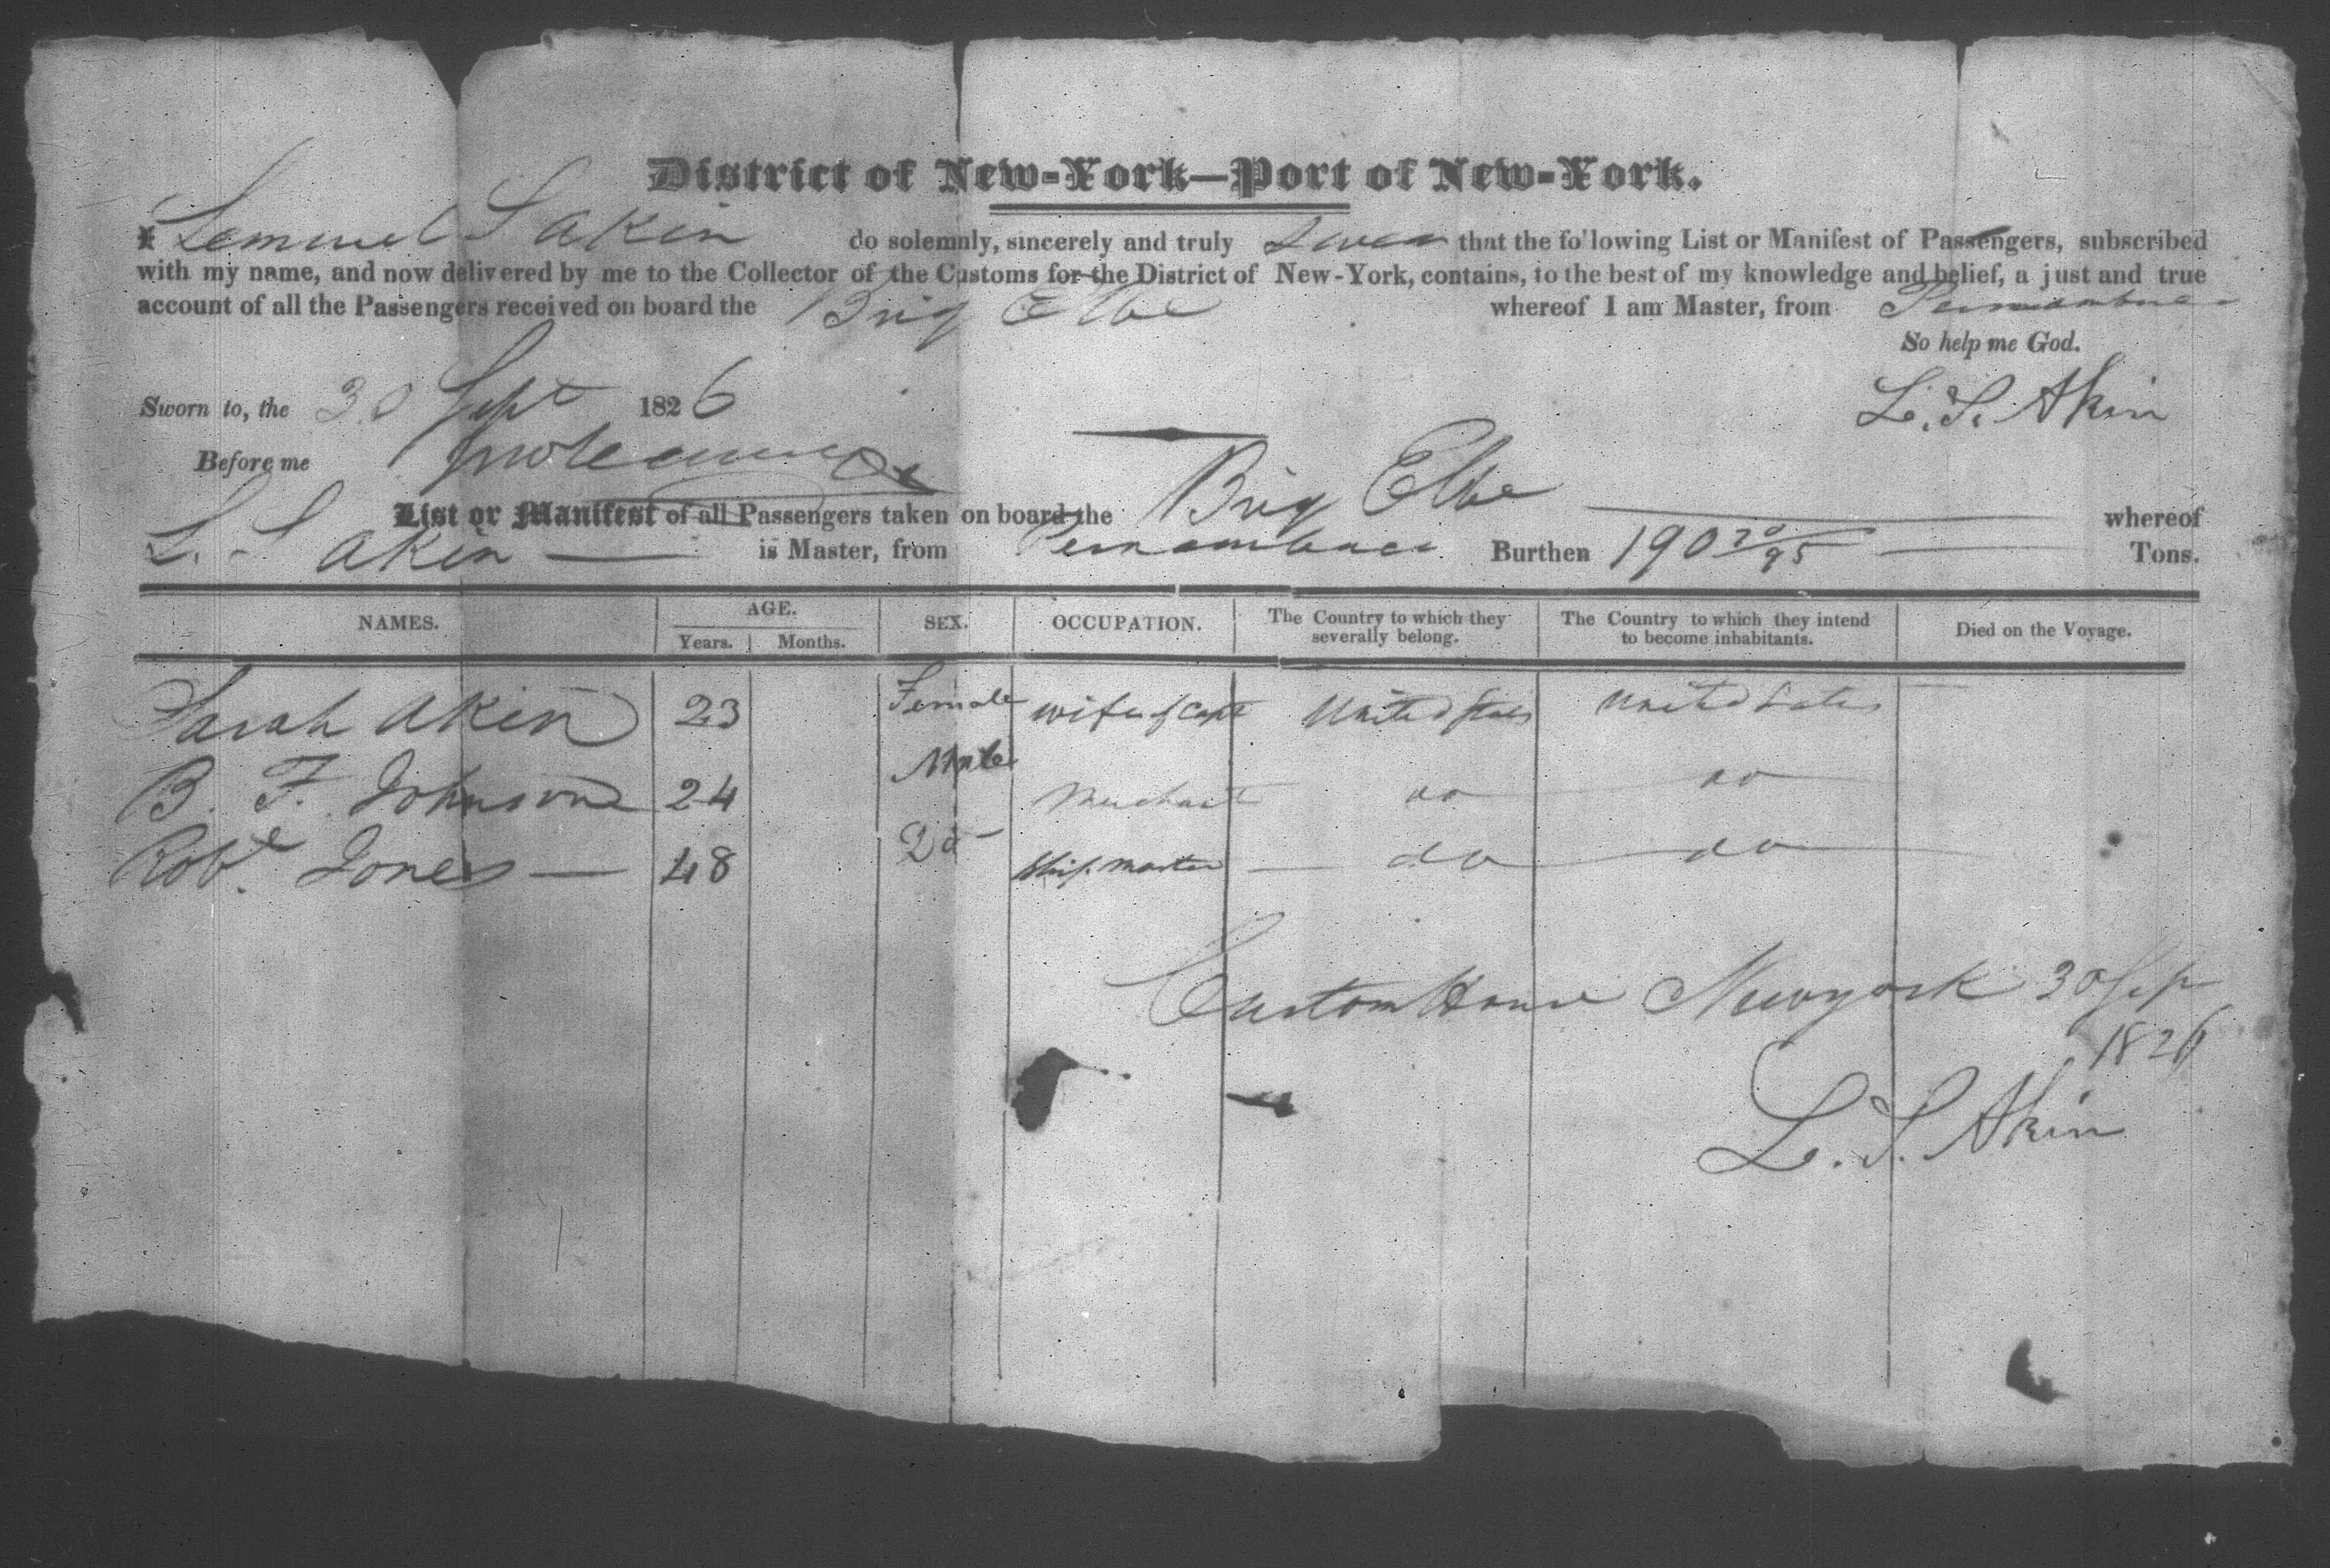 District of New-York—Port of New-York.
I Lemuel S Akin do solemnly, sincerely and truly Swear that the following List or Manifest of Passengers, subscribed
with my name, and now delivered by me to the Collector of the Customs for the District of New-York, contains, to the best of my knowledge and belief, a just and true
account of all the Passengers received on board the Brig Elbe whereof I am Master, from Pernambuco
So help me God.
Sworn to, the 30 Sept 1826
L. S. Akin
Before me
List or Manifest of all Passengers taken on board the Brig Elbe whereof
L. S Akin is Master, from Pernambuco Burthen 190 70/95 Tons.
NAMES. AGE. SEX. OCCUPATION. The Country to which they severally belong. The Country to which they intend to become inhabitants. Died on the Voyage.
Years. Months.
Sarah Akin 23 Female wife of Capt United States United States
B. F. Johnson 24 Male Merchant do do
Robt Jones 48 Do Ship master do do
Custom House Newyork 30 Sep
1826
L. S. Akin